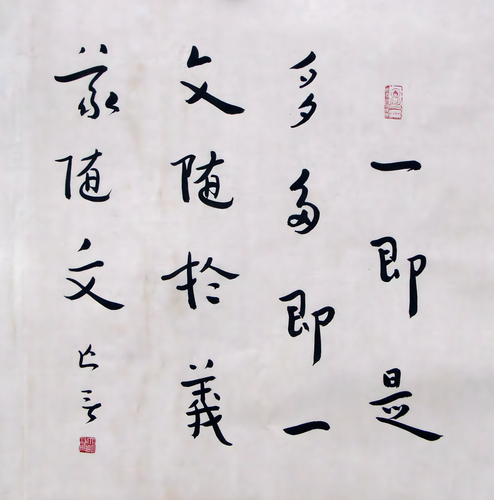 一即是
多多即一
文随於義
義随文